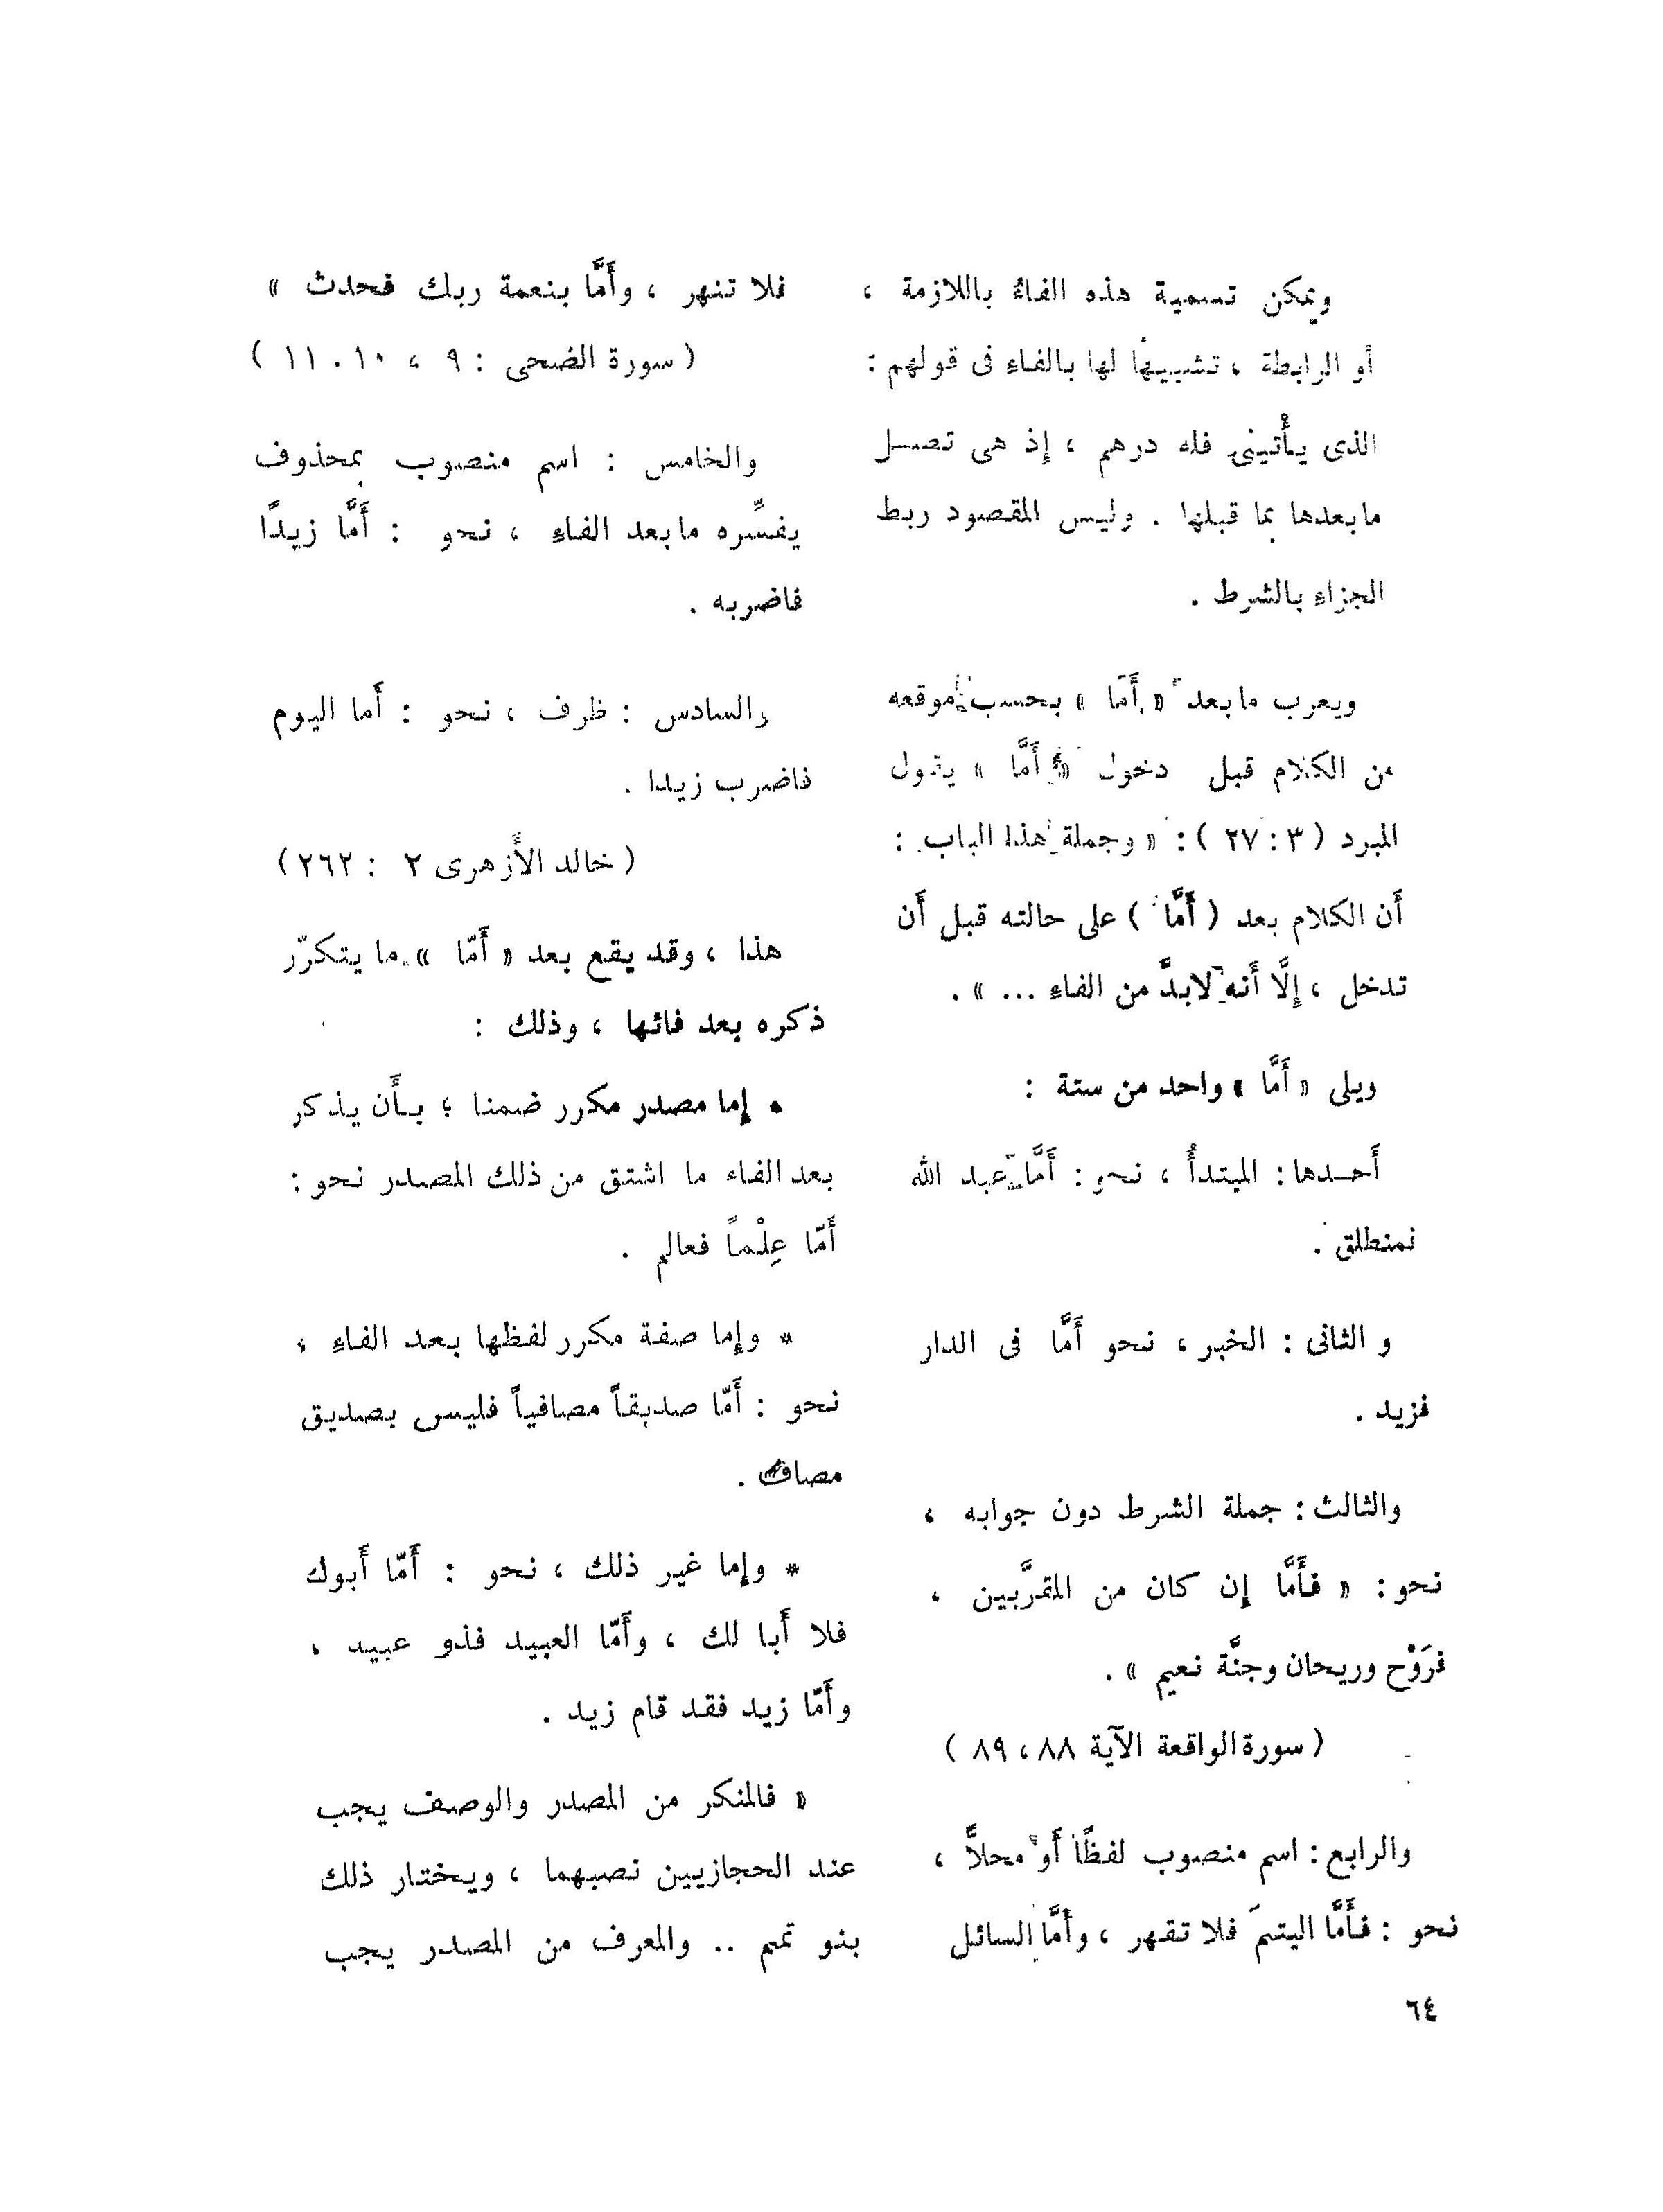 ويمكن تسمية هذه الفاءُ باللازمة ،
أو الرابطة ، تشبيهًا لها بالفاءِ فى قولهم :
الذى يأْتينى فله درهم ، إِذ هى تصــل
مابعدها بما قبلها . وليس المقصود ربط
الجزاءِ بالشرط .
ويعرب مابعد « أَمَّا » بحسب موقعه
من الكلام قبل دخول « أَمَّا » يقول
المبرد ( ٣ : ٢٧ ) : « وجملة هذا الباب :
أَن الكلام بعد ( أَمَّا ) على حالته قبل أَن
تدخل ، إِلَّا أَنه لابدَّ من الفاءِ ... » .
ويلى « أَمَّا » واحد من ستة :
أَحــدها : المبتدأُ ، نحو : أَمَّا عبد الله
فمنطلق .
و الثانى : الخبر ، نحو أَمَّا فى الدار
فزيد .
والثالث : جملة الشرط دون جوابه ،
نحو : « فأَمَّا إِن كان من المقرَّبين ،
فرَوْح وريحان وجنَّة نعيم » .
( سورة الواقعة الآية ٨٨ ، ٨٩ )
والرابع : اسم منصوب لفظًا أَو محلاًّ ،
نحو : فأَمَّا اليتيمَ فلا تقهر ، وأَمَّا السائل
فلا تنهر ، وأَمَّا بنعمة ربك فحدث »
( سورة الضحى : ٩ ، ١٠ . ١١ )
والخامس : اسم منصوب بمحذوف
يفسِّره مابعد الفاءِ ، نحو : أَمَّا زيدًا
فاضربه .
والسادس : ظرف ، نحو : أَما اليوم
فاضرب زيدا .
( خالد الأَزهرى ٢ : ٢٦٢ )
هذا ، وقد يقع بعد « أَمّا » ما يتكرّر
ذكره بعد فائها ، وذلك :
* إما مصدر مكرر ضمنا ؛ بأَن يذكر
بعد الفاء ما اشتق من ذلك المصدر نحو :
أَمّا عِلْماً فعالم .
* وإِما صفة مكرر لفظها بعد الفاءِ ،
نحو : أَمّا صديقاً مصافياً فليس بصديق
مصاف .
* وإِما غير ذلك ، نحو : أَمّا أَبوك
فلا أَبا لك ، وأَمّا العبيد فذو عبيد ،
وأَمّا زيد فقد قام زيد .
« فالمنكر من المصدر والوصف يجب
عند الحجازيين نصبهما ، ويختار ذلك
بنو تميم .. والمعرف من المصدر يجب
٦٤